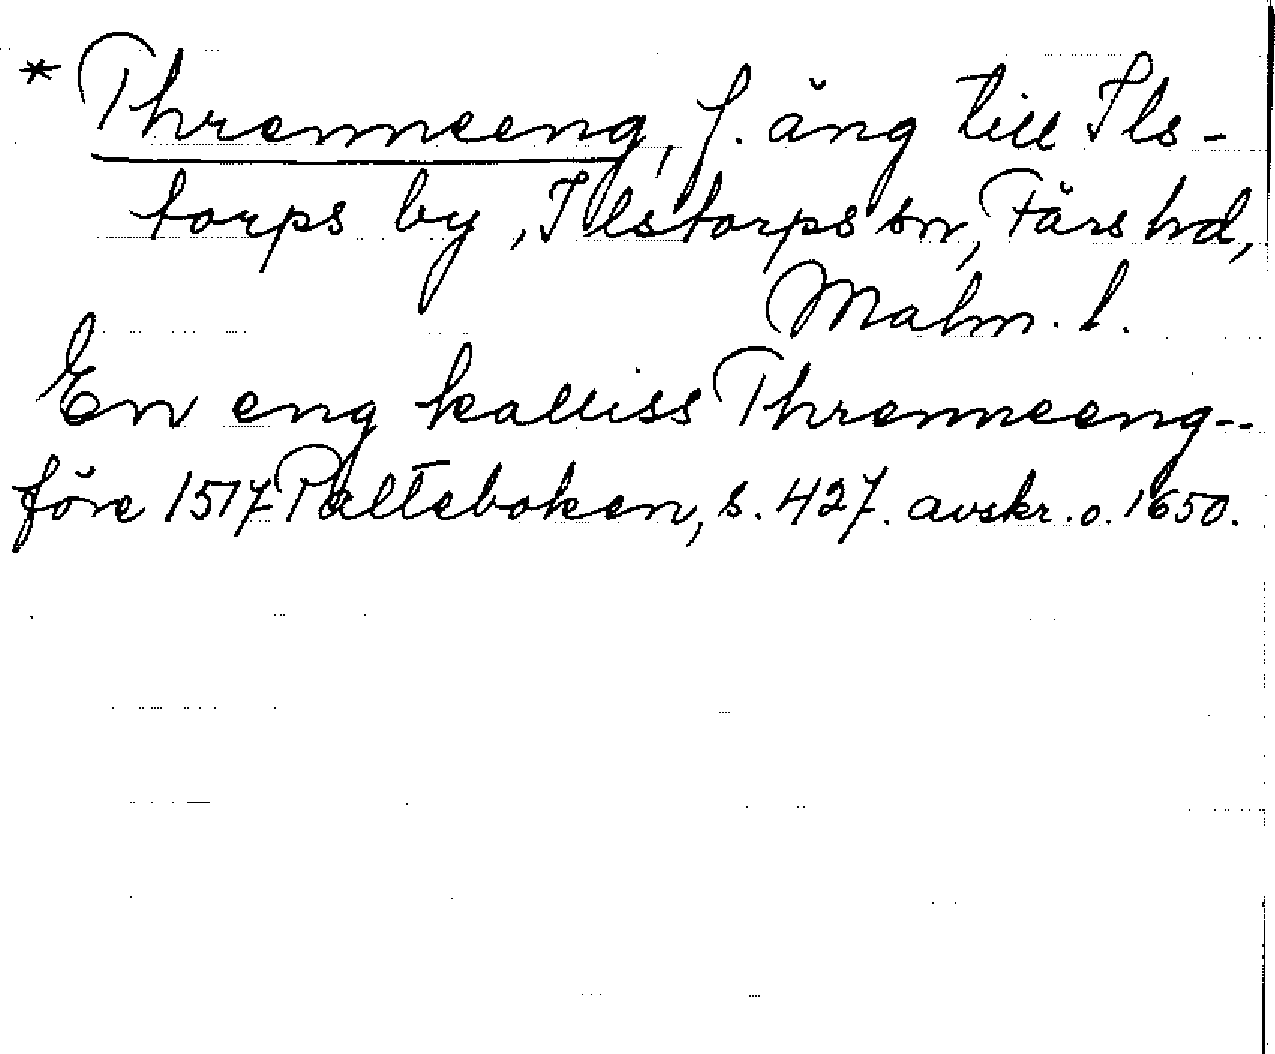 * Threnneeng, f. äng till Ils-
torps by, Ilstorps sn, Färs hd,
Malm. l.
En eng kalliss Threnneeng--
före 1517 Palteboken, s. 427. avskr. o. 1650.